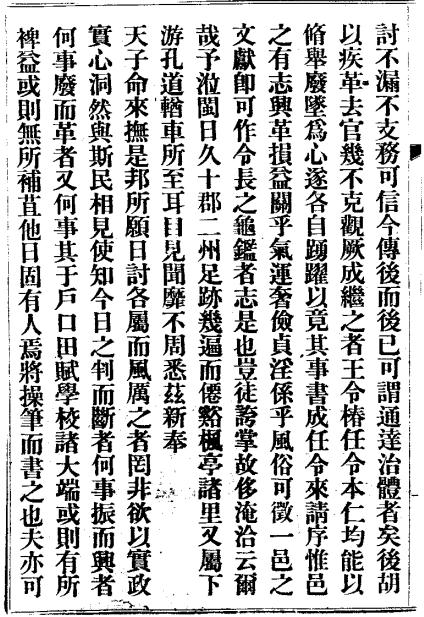 討不漏不支務可信今傳後而後已可謂通達治體者矣後胡
以疾革去官幾不克觀厥成繼之者王令椿任令本仁均能以
脩舉廢墜爲心遂各自踴躍以竟其事書成任令來請序惟邑
之有志興革損益關乎氣運奢儉貞淫係乎風俗可徵一邑之
文獻卽可作令長之龜鑑者志是也豈徒誇掌故侈淹洽云爾
哉予涖閩日久十郡二州足跡幾遍而僊谿楓亭諸里又屬下
游孔道輶車所至耳目見聞靡不周悉茲新奉
天子命來撫是邦所願日討各屬而風厲之者罔非欲以實政
實心洞然與斯民相見使知今日之判而斷者何事振而興者
何事廢而革者又何事其于戶口田賦學校諸大端或則有所
裨益或則無所補苴他日固有人焉將操筆而書之也夫亦可